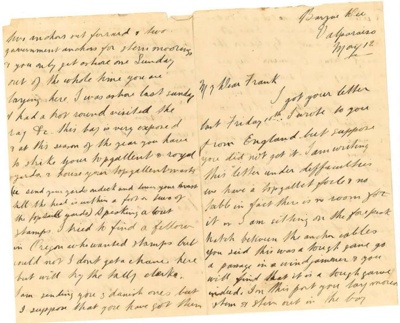 Barque Dee
Valparaiso
May 12
My Dear Frank
I got your letter
last Friday 10th. I wrote to you
from England but suppose
you did not get it. I am writing
this letter under deffaculties
we have a topgallet focle & no
table in fact there is no room for
it so I am sitting on the forepeak
hatch between the anchor cables
you said this was a tough game go
a passage in a windjammer & you
will find that it is a tough game
indeed. In this port you lay moored
stem & stern out in the bay
two anchors out forrard & two
government anchors for stern moorings
& you only get ashore one Sunday
out of the whole time you are
laying here. I was ashore last Sunday
& had a look round visited the
& this bay is very exposed
& at this season of the year you have
to strike your topgallant & royal
yards & house your topgallant masts
(ie send your yards on deck and lower your
till the head is within a foot or two of
the topsail yards) Speaking about
stamps I tried to find a fellow
in Oregon who wanted stamps but
could not & dont get a chance here
but will try the tally clerks.
I am sending you 1 danish one but
I suppose that you have got them